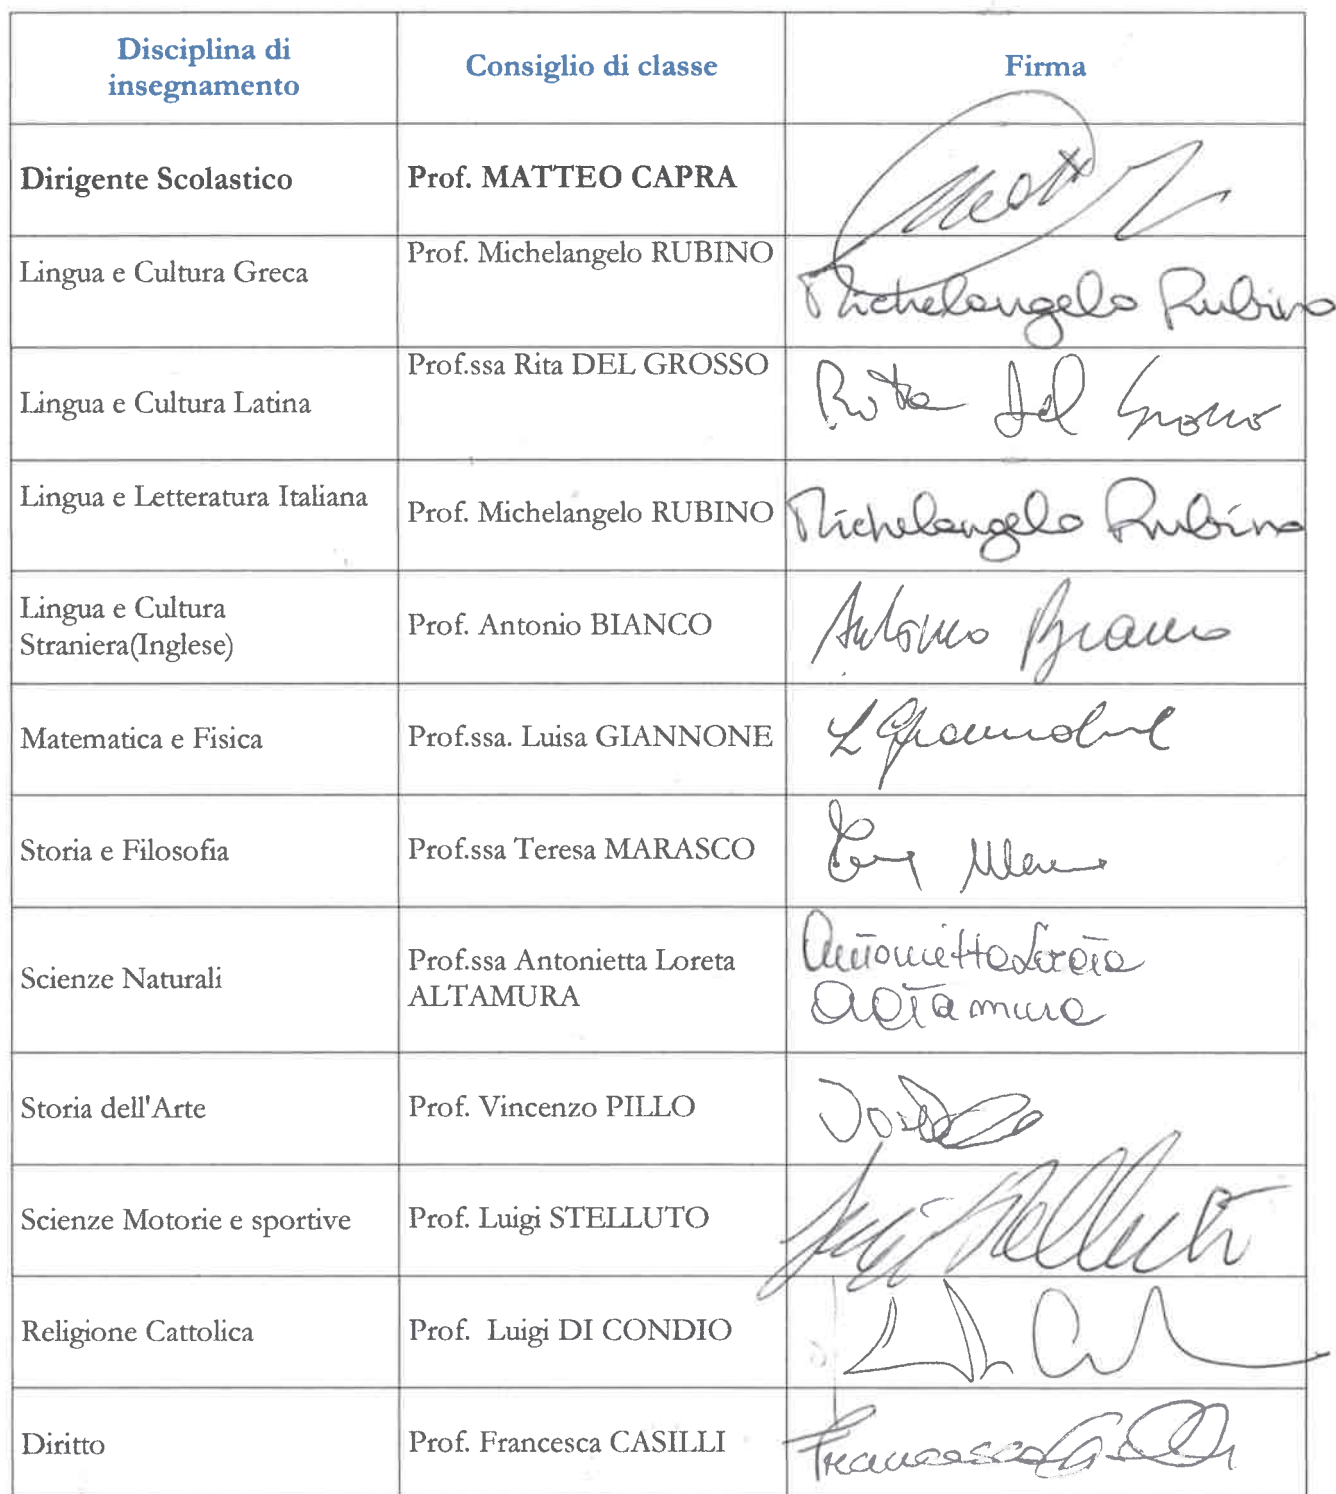 Disciplina di
insegnamento
Consiglio di classe
Firma
Dirigente Scolastico
Prof. MATTEO CAPRA
Lingua e Cultura Greca
Prof. Michelangelo RUBINO
Michelangelo Rubino
Lingua e Cultura Latina
Prof.ssa Rita DEL GROSSO
Rita Del Grosso
Lingua e Letteratura Italiana
Prof. Michelangelo RUBINO
Michelangelo Rubino
Lingua e Cultura
Straniera(Inglese)
Prof. Antonio BIANCO
Antonio Bianco
Matematica e Fisica
Prof.ssa. Luisa GIANNONE
Storia e Filosofia
Prof.ssa Teresa MARASCO
Scienze Naturali
Prof.ssa Antonietta Loreta
ALTAMURA
Antonietta Loreta
Altamura
Storia dell'Arte
Prof. Vincenzo PILLO
Scienze Motorie e sportive
Prof. Luigi STELLUTO
Luigi Stelluto
Religione Cattolica
Prof. Luigi DI CONDIO
Diritto
Prof. Francesca CASILLI
Francesca Casilli